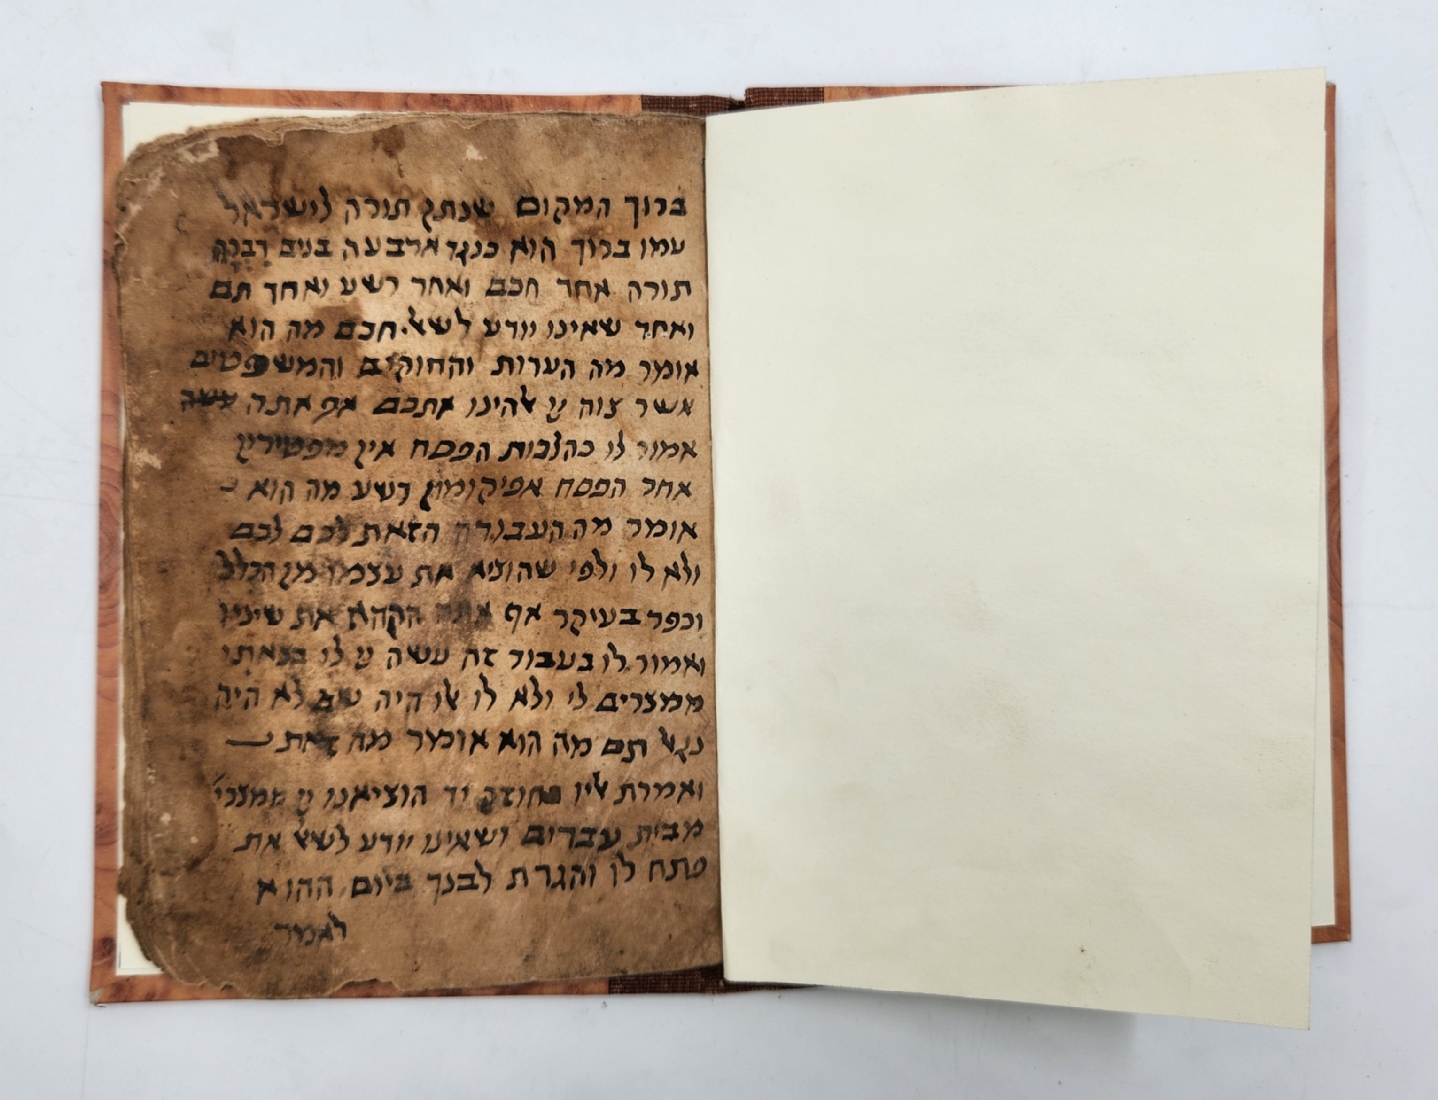 ברוך המקום שנתן תורה לישראל
עמו ברוך הוא כנגד ארבעה בנים דברה
תורה אחד חכם ואחד רשע ואחד תם
ואחד שאינו יודע לשאל חכם מה הוא
אומר מה העדות והחוקים והמשפטים
אשר צוה יי אלהינו אתכם אף אתה
אמור לו כהלכות הפסח אין מפטירין
אחר הפסח אפיקומין רשע מה הוא
אומר מה העבודה הזאת לכם לכם
ולא לו ולפי שהוציא את עצמו מן הכלל
וכפר בעיקר אף אתה הקהא את שיניו
ואמור לו בעבור זה עשה יי לי בצאתי
ממצרים לי ולא לו אלו היה שם לא היה
נגאל תם מה הוא אומר מה זאת
ואמרת אליו בחוזק יד הוציאנו יי ממצרי'
מבית עבדים ושאינו יודע לשאל את
פתח לו והגדת לבנך ביום ההוא
לאמר